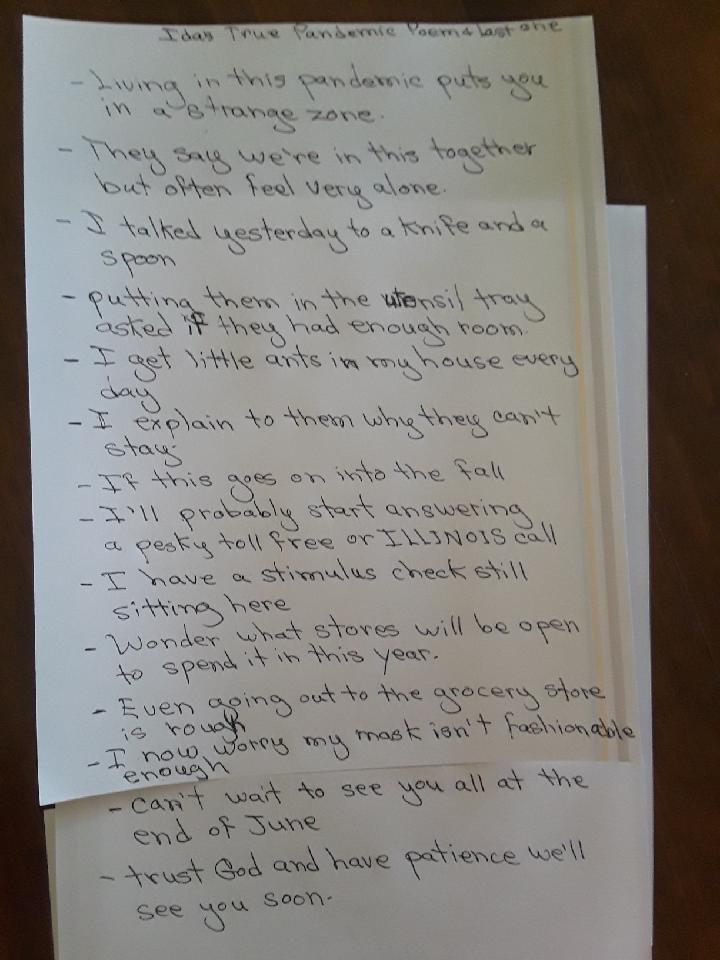 Idas True Pandemic Poem & last one
- Living in this pandemic puts you
in a strange zone.
- They say we're in this together
but often feel very alone.
- I talked yesterday to a knife and a
spoon
- putting them in the utensil tray
asked if they had enough room.
- I get little ants in my house every
day
- I explain to them why they can't
stay.
- If this goes on into the fall
- I'll probably start answering
a pesky toll free or ILLINOIS call
- I have a stimulus check still
sitting here
- Wonder what stores will be open
to spend it in this year.
- Even going out to the grocery store
is rough
- I now worry my mask isn't fashionable
enough
- Can't wait to see you all at the
end of June
- trust God and have patience we'll
see you soon.